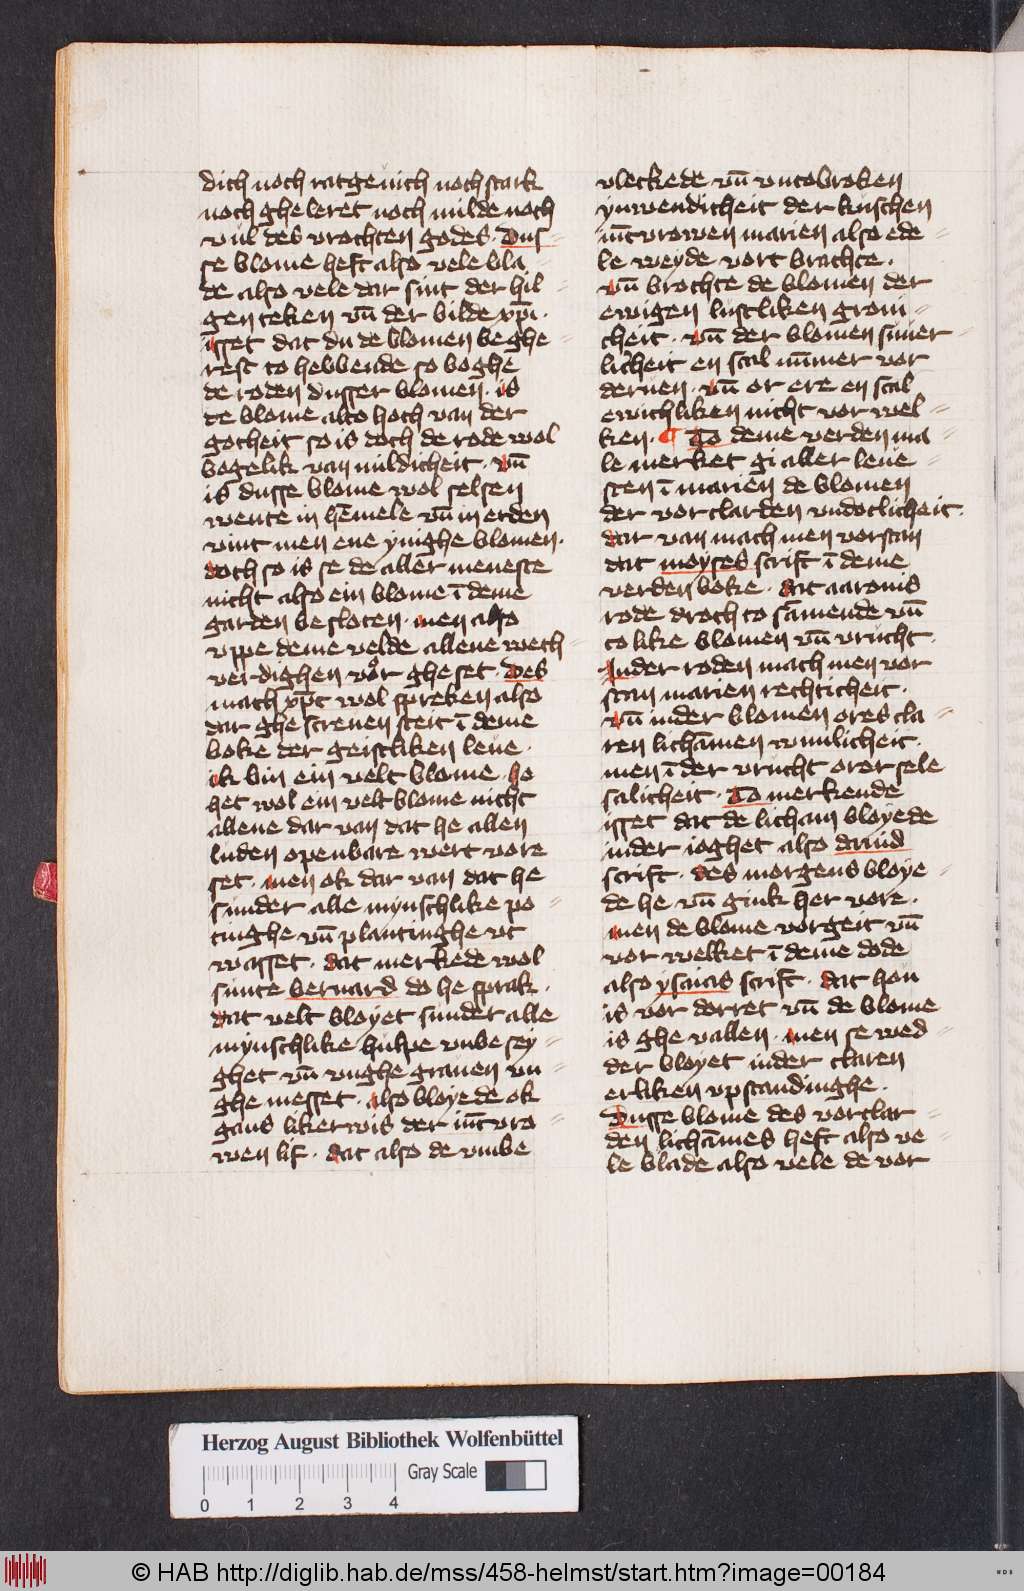 dich noch ratgeuich noch stark
noch ghe leret noch milde noch
vul des vrochten godes. Dus-
se blome heft also vele bla-
de also vele dar sint der hil-
gen teken vn̄ der bilde xp̄i.
isset dat du de blomen beghe-
rest to hebbende so boghe
de roden dusser blomen. is
de blome alto hoch van der
gotheit so is doch de rode wol
bogelik van mildicheit. vn̄
is dusse blome wol selsen
wente in hēmele vn̄ in erden
vint men ene ynighe blomen.
doch so is se de aller meneste
nicht also ein blome ī deme
garden be sloten. men also
vppe deme velde allene wech-
verdighen vor ghe set. Des
mach xp̄c wol spreken also
dar ghe screuen steit ī deme
boke der geistliken leue.
ik bin ein velt blome. ho
het wol ein velt blome nicht
allene dar van dat he allen
luden openbare wert vore
set. men ok dar van dat he
sunder alle mynschlike po-
tinghe vn̄ plantinghe vt
wasset. dat merkede wol
sunte bernard do he sprak.
dat velt bloyet sunder alle
mynschlike hulpe vmbe sey-
ghet vn̄ vnghe grauen vn-
ghe messet. also bloyede ok
gans likerwis der iūcvro-
wen lif. dat also de vmbe
vleckede vn̄ vntobroken
ynwendicheit der kuschen
iūcvrowen marien also ede-
le weyde vort brachte.
vn̄ brochte de blomen der
ewigen lustliken groni-
cheit. vn̄ der blomen suuer-
licheit en scal nūmer vor
deruen. vn̄ or ere en scal
ewichliken nicht vor wel-
ken. ¶ To deme verden ma-
le merket gi aller leue-
sten ī marien de blomen
der vorclarden vndotlicheit.
dar van mach men vorstan
dat moyses scrift ī deme
verden boke. dat aarons
rode droch to sāmende vn̄
to like blomen vn̄ vrucht.
Inder roden mach men vor
stan marien rechticheit.
vn̄ inder blomen ores cla-
ren lichāmen wunlicheit.
men ī der vrucht orer sele
salicheit. To merkende
isset dat de licham bloyede
inder ioghet also dauid
scrift. des morgens bloye-
de he vn̄ gink her vore.
men de blome vorgeit vn̄
vor welket ī deme dode
also ysaias scrift. dat hou
is vor dorret vn̄ de blome
is ghe vallen. men se wed-
der bloyet inder claren
erliken vpstandinghe.
Dusse blome des vorclar-
den lichāmes heft also ve-
le blade also vele de vor
Herzog August Bibliothek Wolfenbüttel
Gray Scale
0 1 2 3 4
© HAB http://diglib.hab.de/mss/458-helmst/start.htm?image=00184